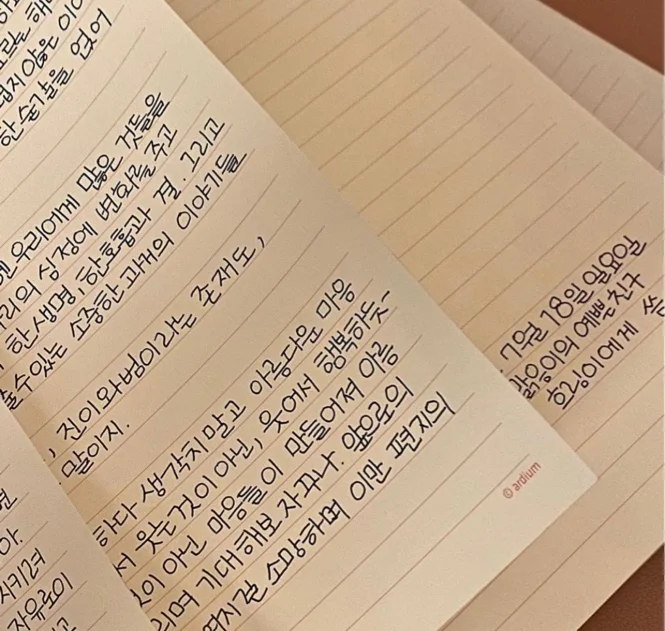 없지않은 이
한 순간을 없어
우리에게 많은 것들을
리의 심정에 변화를 주고
한 생명, 한 호흡과 결. 그리고
수있는 소중한 과거의 이야기들
, 진이와범이라는 존재도,
말이지.
하다 생각지말고 아름다운 마음
서 웃는것이 아닌, 웃어서 행복하듯~
이 아닌 마음들이 만들어져 아름
리며 기대해보자꾸나. 앞으로의
소망하며 이만 편지의
시키려
자유로이
© ardium
7월 18일 일요일
의 예쁜친구
호랑이에게